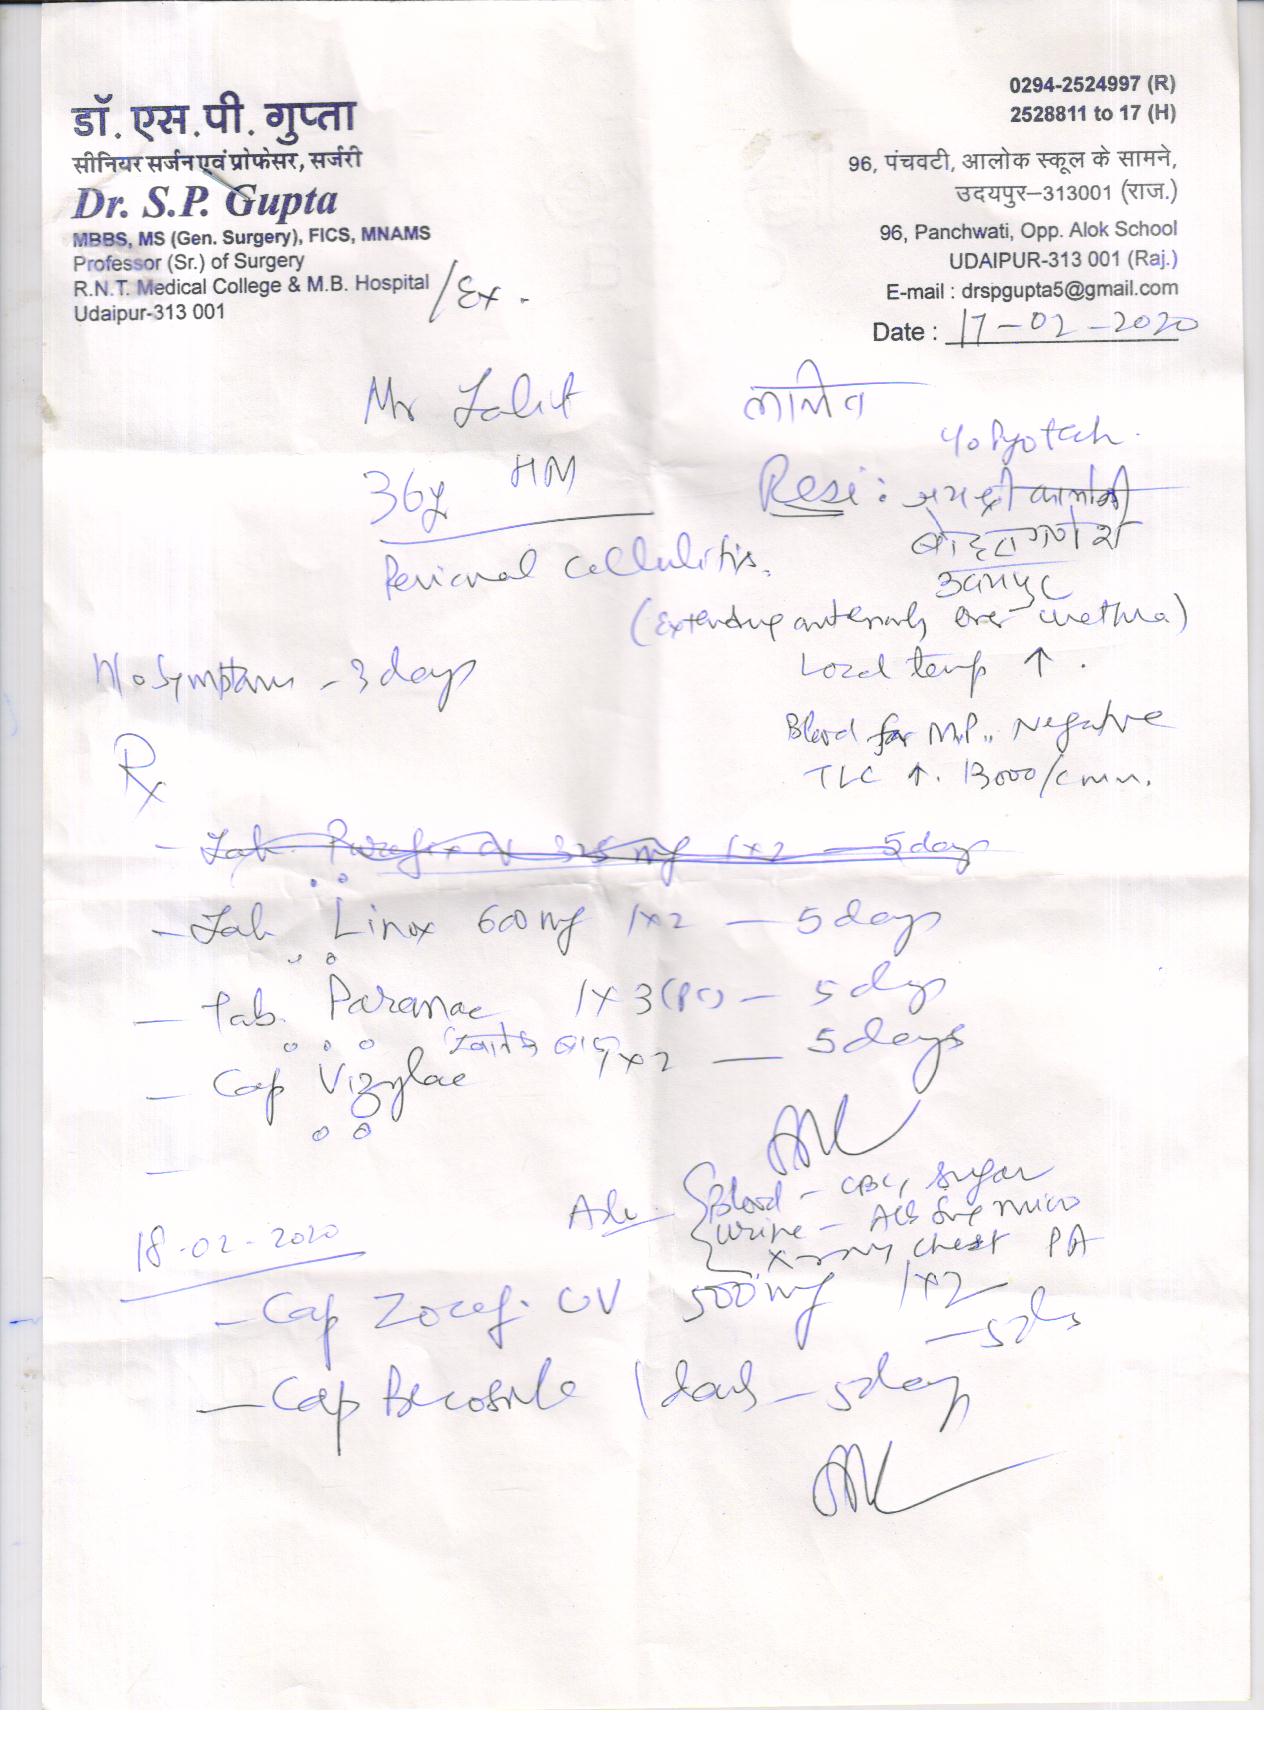 डॉ. एस.पी. गुप्ता
सीनियर सर्जन एवं प्रोफेसर, सर्जरी
Dr. S.P. Gupta
MBBS, MS (Gen. Surgery), FICS, MNAMS
Professor (Sr.) of Surgery
R.N.T. Medical College & M.B. Hospital /Ex.
Udaipur-313 001
0294-2524997 (R)
2528811 to 17 (H)
96, पंचवटी, आलोक स्कूल के सामने,
उदयपुर–313001 (राज.)
96, Panchwati, Opp. Alok School
UDAIPUR-313 001 (Raj.)
E-mail : drspgupta5@gmail.com
Date : 17-02-2020
Mr Lalit
36y HM
Resi :
Perional Cellulitis.
(Extending anteriorly over urethra)
Local temp ↑.
H/o Symptoms - 3 days
Blood for M.P.. Negative
TLC ↑. 13000/cmm.
Rx
- Tab. 325 mg 1x2 - 5 days
- Tab Linox 600 mg 1x2 - 5 days
- Tab. Paramac 1x3 (PC) - 5 days
- Cap Vizylac 1x2 - 5 days
Adv. Blood - CBC, Sugar
Urine - Alb Sug Micro
X-ray chest PA
18-02-2020
- Cap Zocef. CV 500 mg 1x2
- 5 ds
- Cap Becosule 1 daily - 5 days